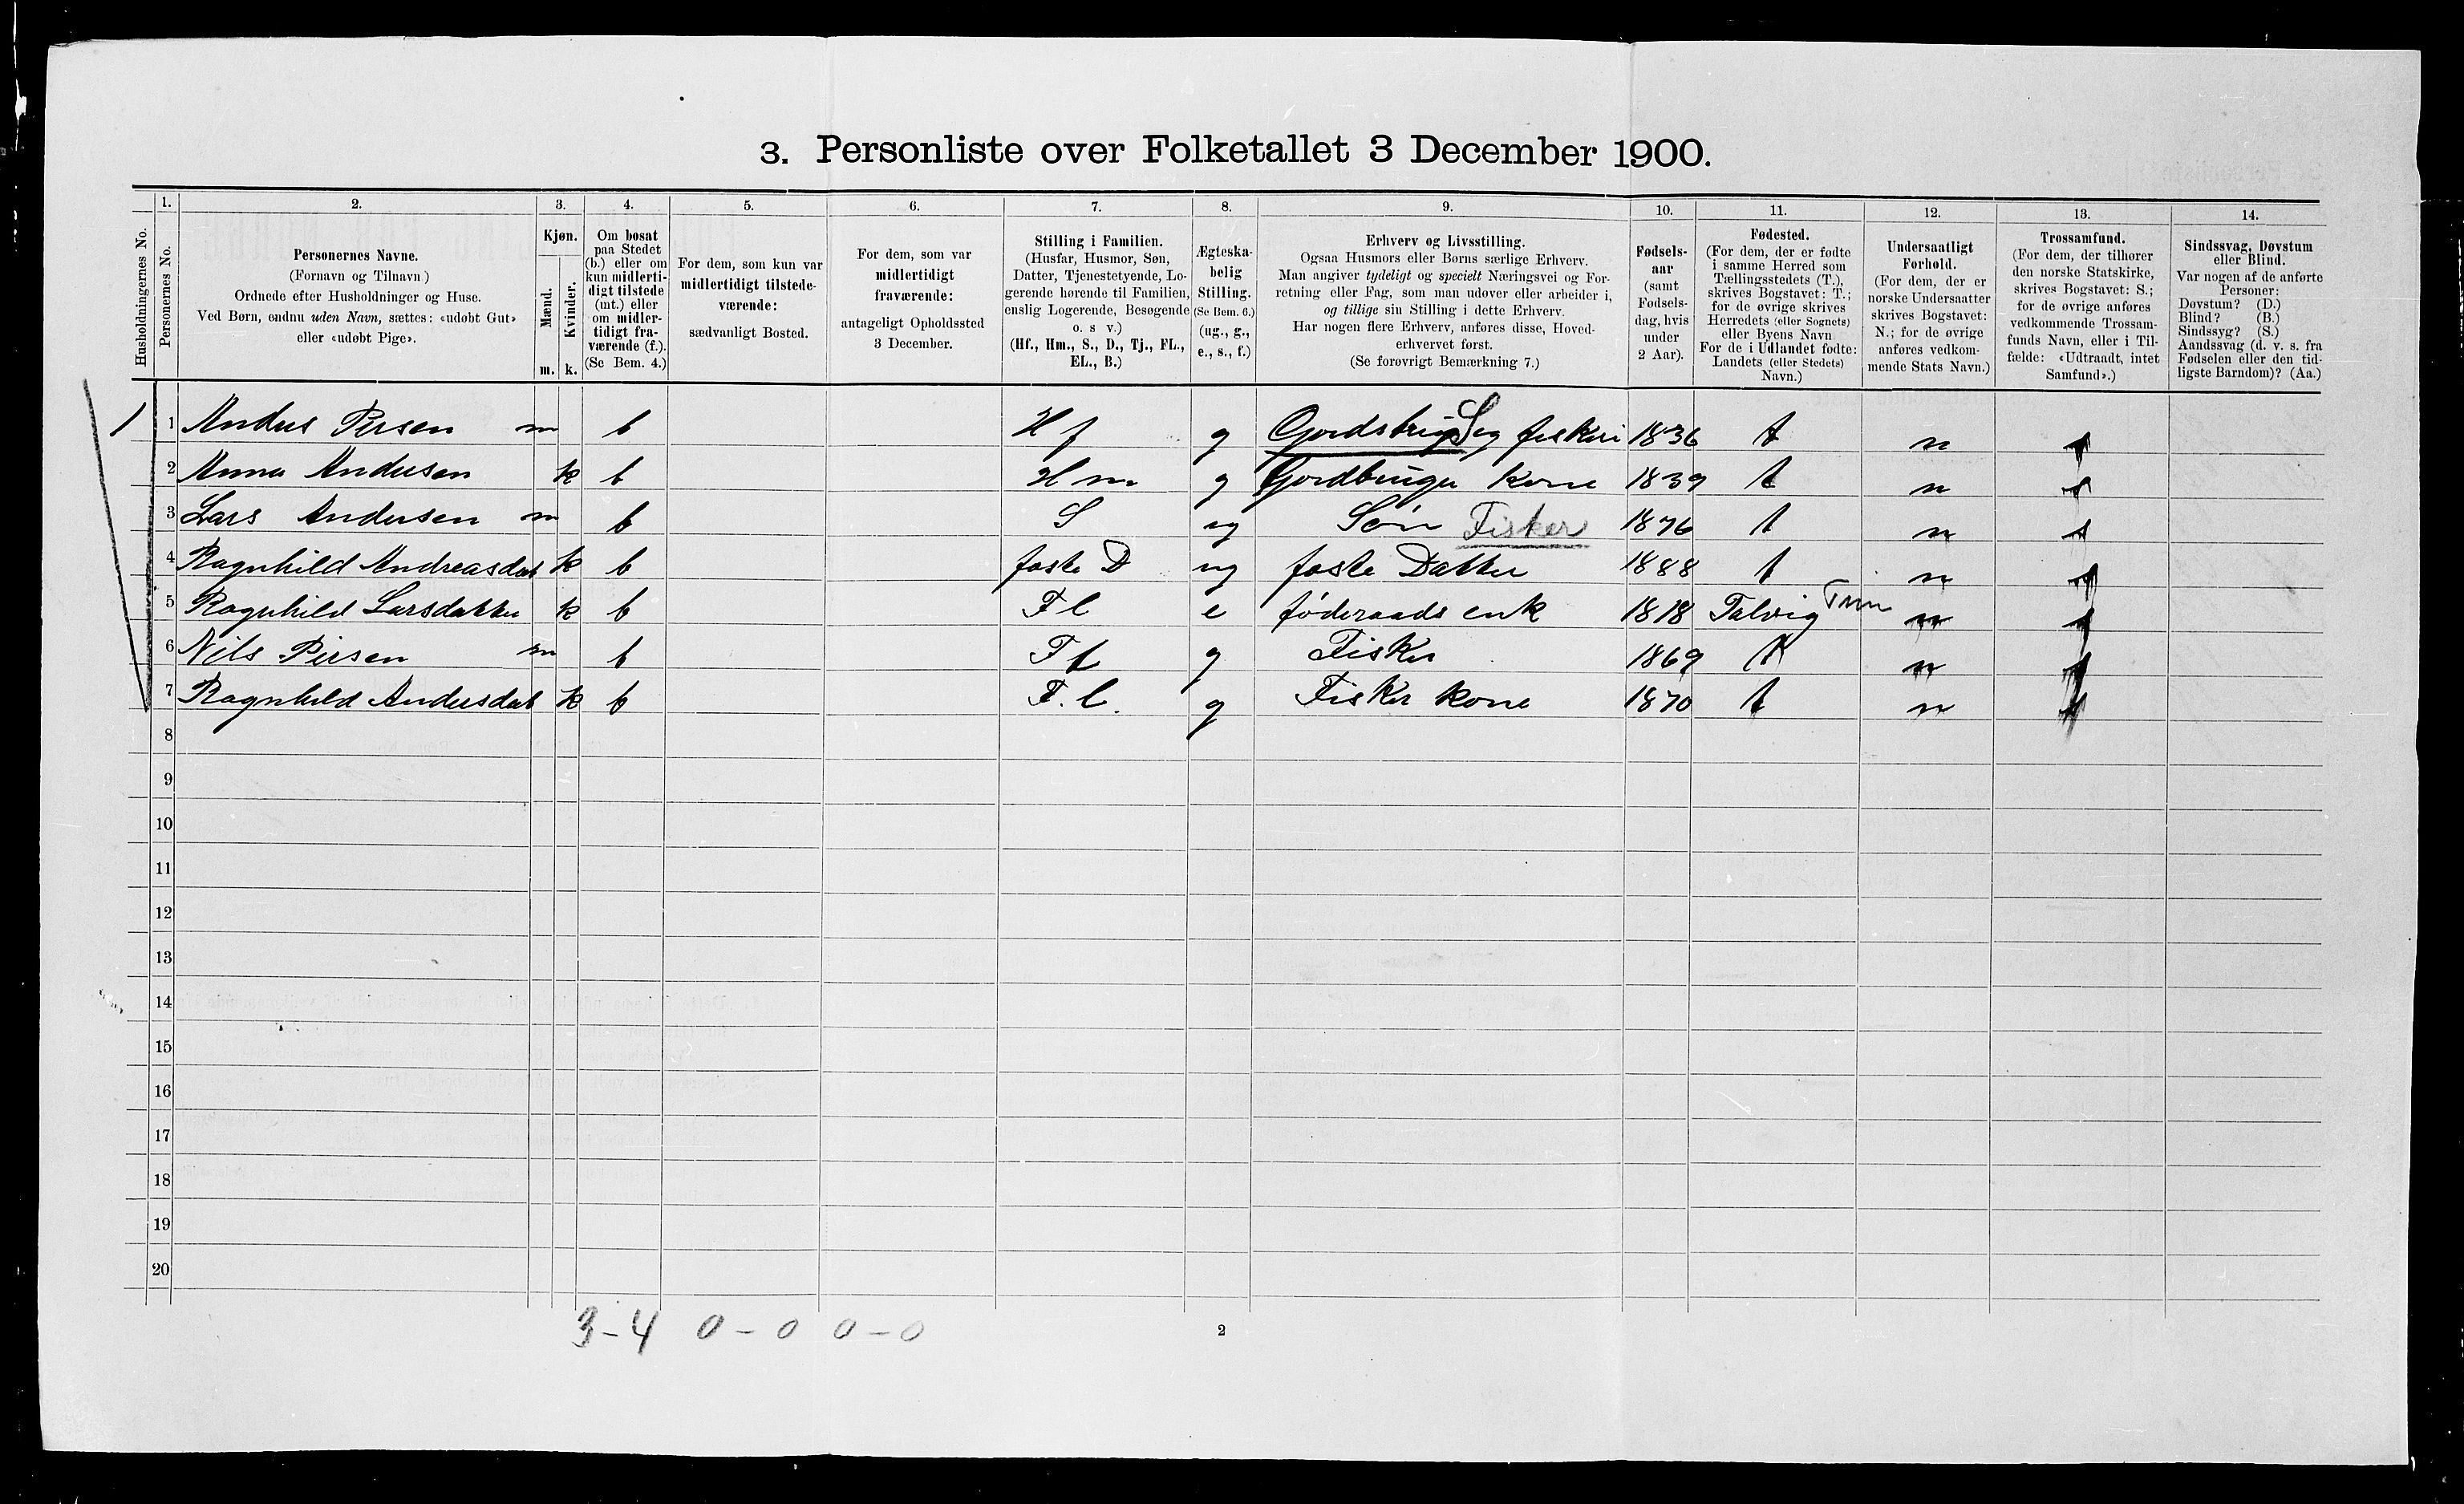 3. Personliste over Folketallet 3 December 1900.
1. 2. 3. 4. 5. 6. 7. 8. 9. 10. 11. 12. 13. 14.
Husholdningernes No.
Personernes No.
Personernes Navne.
(Fornavn og Tilnavn)
Ordnede efter Husholdninger og Huse.
Ved Børn, endnu uden Navn, sættes: «udøbt Gut»
eller «udøbt Pige».
Kjøn.
Mænd.
Kvinder.
m. k.
Om bosat
paa Stedet
(b.) eller om
kun midlerti-
digt tilstede
(mt.) eller
om midler-
tidigt fra-
værende (f.).
(Se Bem. 4.)
For dem, som kun var
midlertidigt tilstede-
værende:
sædvanligt Bosted.
For dem, som var
midlertidigt
fraværende:
antageligt Opholdssted
3 December.
Stilling i Familien.
(Husfar, Husmor, Søn,
Datter, Tjenestetyende, Lo-
gerende hørende til Familien,
enslig Logerende, Besøgende
o. s v.)
(Hf., Hm., S., D., Tj., FL.,
EL., B.)
Ægteska-
belig
Stilling.
(Se Bem. 6.)
(ug., g.,
e., s., f.)
Erhverv og Livsstilling.
Ogsaa Husmors eller Børns særlige Erhverv.
Man angiver tydeligt og specielt Næringsvei og For-
retning eller Fag, som man udøver eller arbeider i,
og tillige sin Stilling i dette Erhverv.
Har nogen flere Erhverv, anføres disse, Hoved-
erhvervet først.
(Se forøvrigt Bemærkning 7.)
Fødsels-
aar
(samt
Fødsels-
dag, hvis
under
2 Aar).
Fødested.
(For dem, der er fødte
i samme Herred som
Tællingsstedets (T.),
skrives Bogstavet: T.;
for de øvrige skrives
Herredets (eller Sognets)
eller Byens Navn
For de i Udlandet fødte:
Landets (eller Stedets)
Navn.)
Undersaatligt
Forhold.
(For dem, der er
norske Undersaatter
skrives Bogstavet:
N.; for de øvrige
anføres vedkom-
mende Stats Navn.)
Trossamfund.
(For dem, der tilhører
den norske Statskirke,
skrives Bogstavet: S.;
for de øvrige anføres
vedkommende Trossam-
funds Navn, eller i Til-
fælde: «Udtraadt, intet
Samfund».)
Sindssvag, Døvstum
eller Blind.
Var nogen af de anførte
Personer:
Døvstum? (D.)
Blind? (B.)
Sindssyg? (S.)
Aandssvag (d. v. s. fra
Fødselen eller den tid-
ligste Barndom)? (Aa.)
1 1 Andus Persen m b H f g S 1836 t n s
2 Anna Andersen k b H m g Gordbruger Kone 1839 t n s
3 Lars Andersen m b S ug Søn Fisker 1876 t n s
4 Ragnhild Andreasdat k b foste D ug foste Datter 1888 t n s
5 Ragnhild Larsdatter k b Fl e føderaads enk 1818 Talvig n s
6 Nils Persen m b F g Fisker 1869 t n s
7 Ragnhild Andersdat k b F. l. g Fisker kone 1870 t n s
8
9
10
11
12
13
14
15
16
17
18
19
20
3-4 0-0 0-0
2